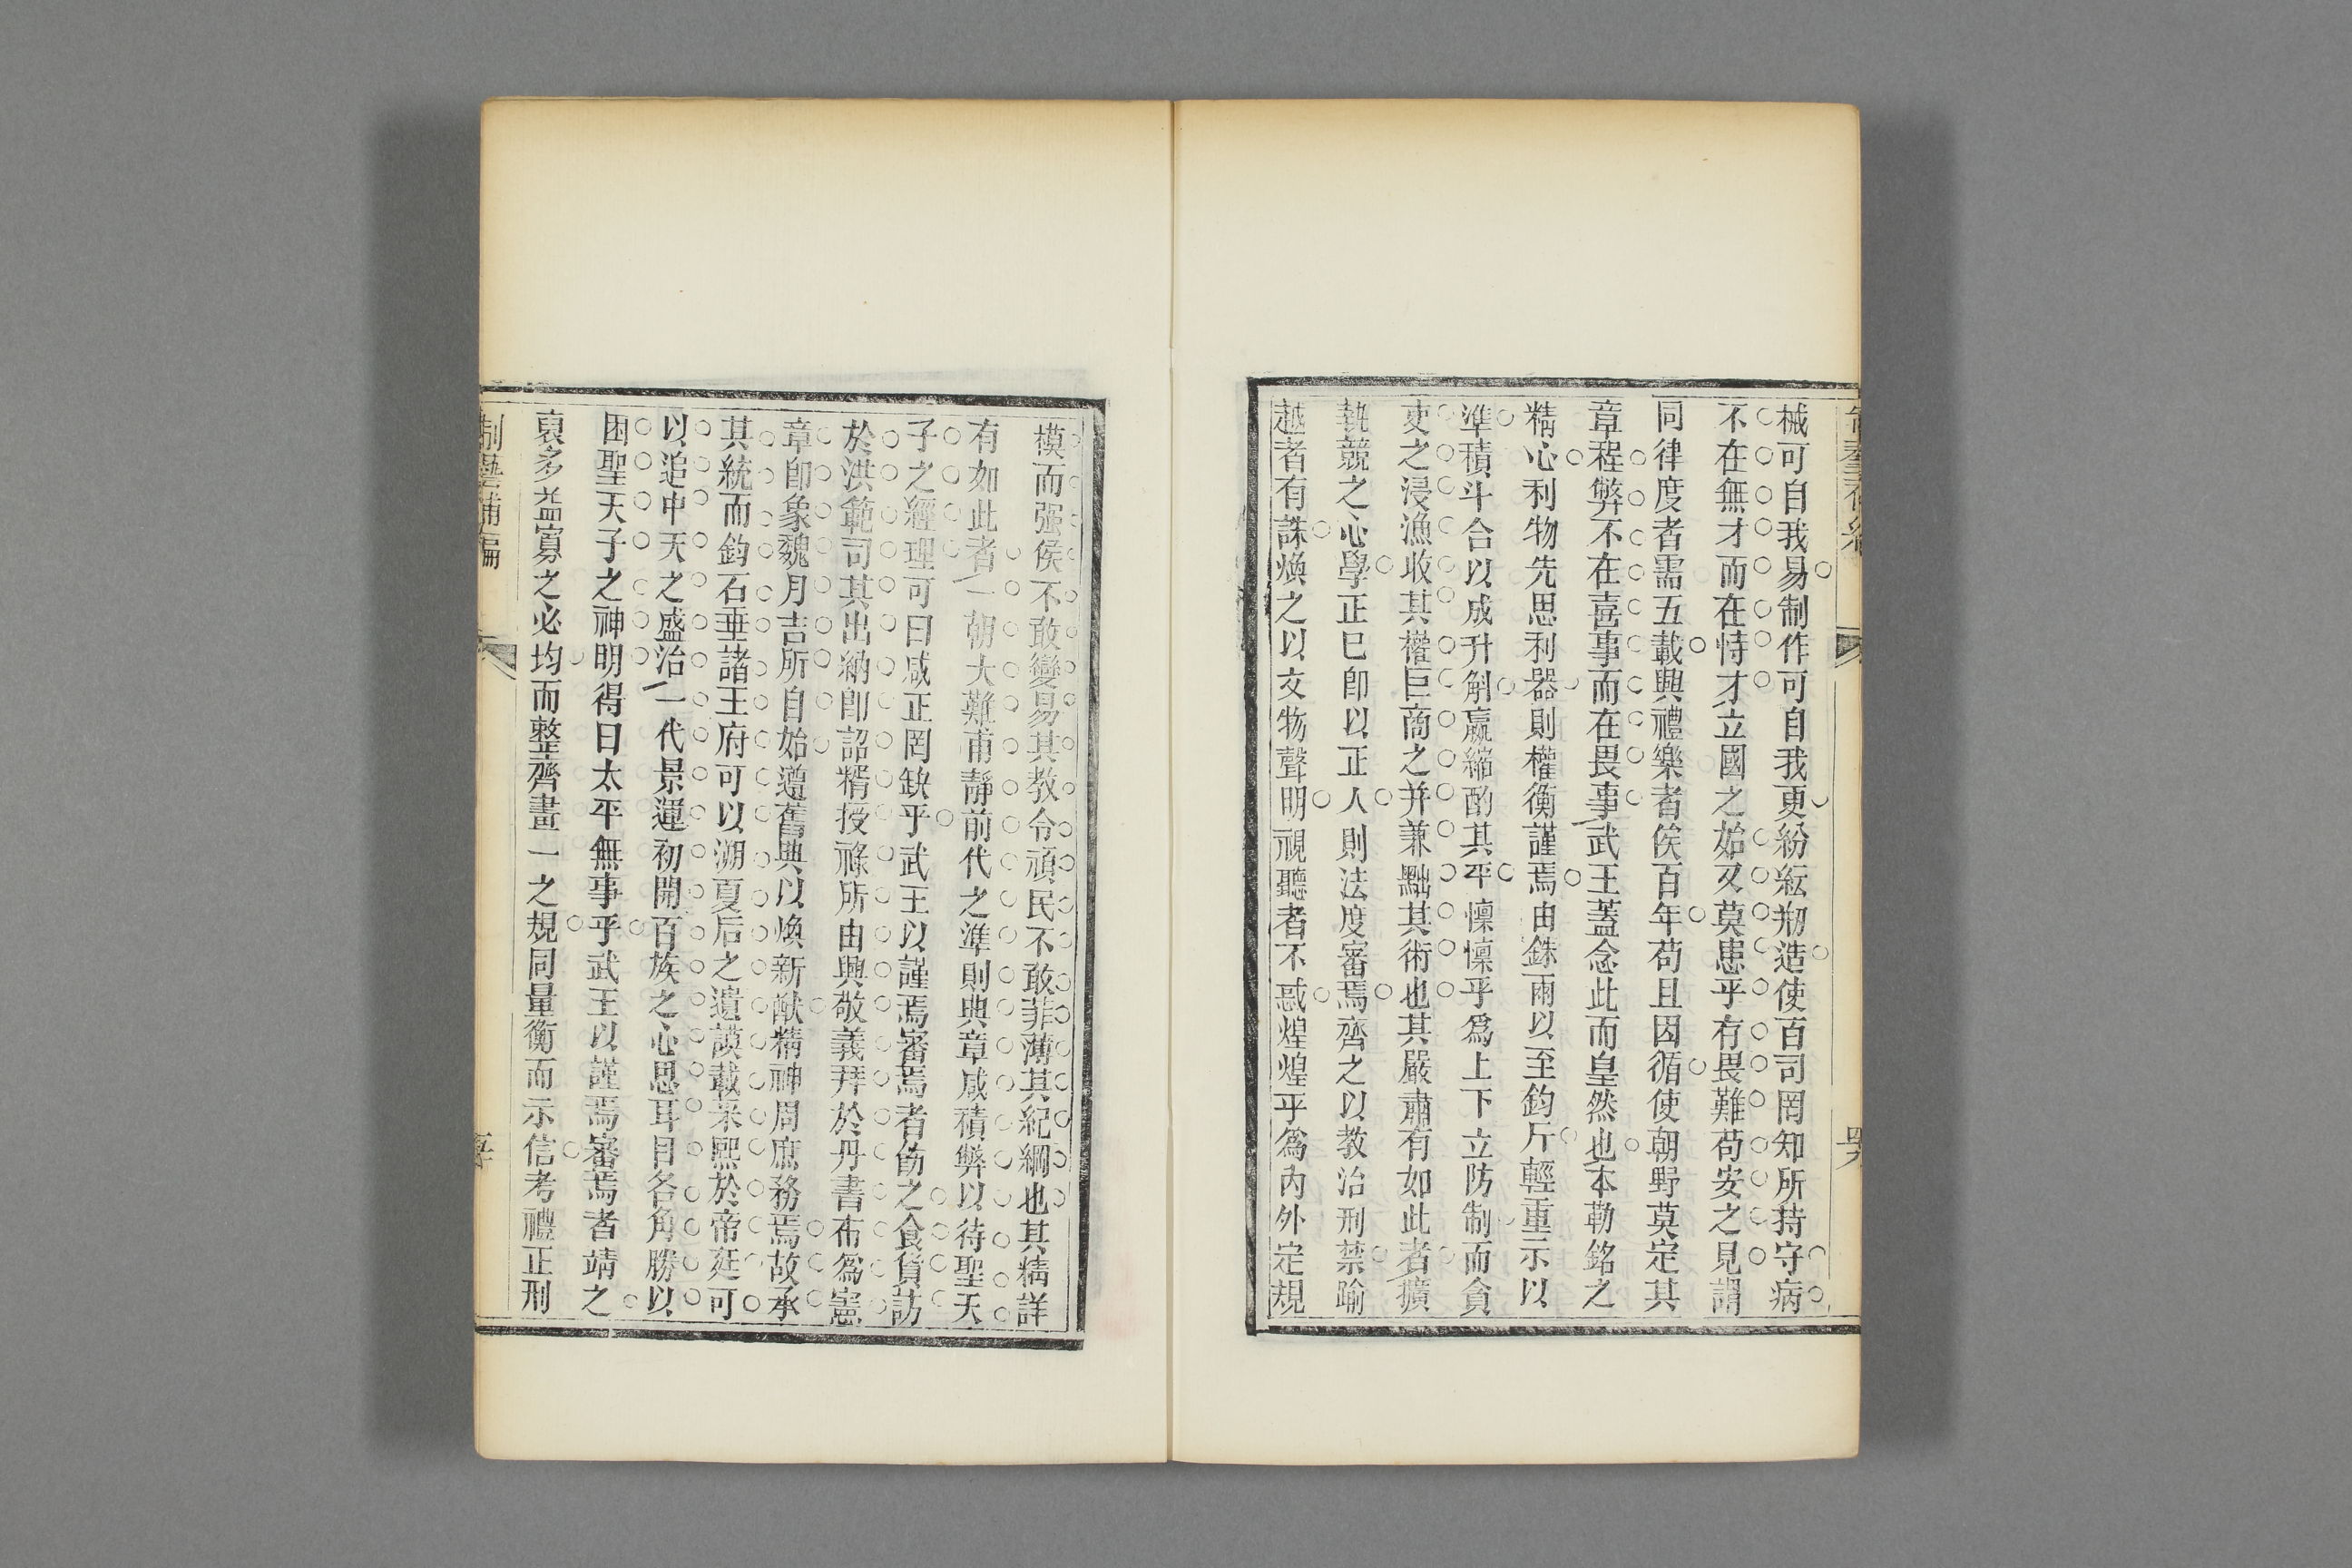 械可自我易制作可自我更紛紜剏造使百司罔知所持守病
不在無才而在恃才立國之始又莫患乎有畏難苟安之見謂
同律度者需五載興禮樂者俟百年苟且因循使朝野莫定其
章程弊不在喜事而在畏事武王蓋念此而皇然也本勒銘之
精心利物先思利器則權衡謹焉由銖兩以至鈞斤輕重示以
準積斗合以成升斛贏縮酌其平懍懍乎為上下立防制而貪
吏之浸漁收其權巨商之并兼黜其術也其嚴肅有如此者擴
執競之心學正已即以正人則法度審焉齊之以教治刑禁踰
越者有誅煥之以文物聲明視聽者不惑煌煌乎為內外定規
模而强侯不敢變易其教令頑民不敢菲薄其紀綱也其精詳
有如此者一朝大難甫靜前代之準則典章咸積弊以待聖天
子之經理可曰咸正罔缺乎武王以謹焉審焉者飭之食貨訪
於洪範司其出納即詔糈授祿所由興敬義拜於丹書布為憲
章即象魏月吉所自始遵舊典以煥新猷精神周庶務焉故承
其統而鈞石垂諸王府可以溯夏后之遺謨載采熙於帝廷可
以追中天之盛治一代景運初開百族之心思耳目各角勝以
困聖天子之神明得曰太平無事乎武王以謹焉審焉者靖之
裒多益寡之必均而整齊畫一之規同量衡而示信考禮正刑
制藝補編